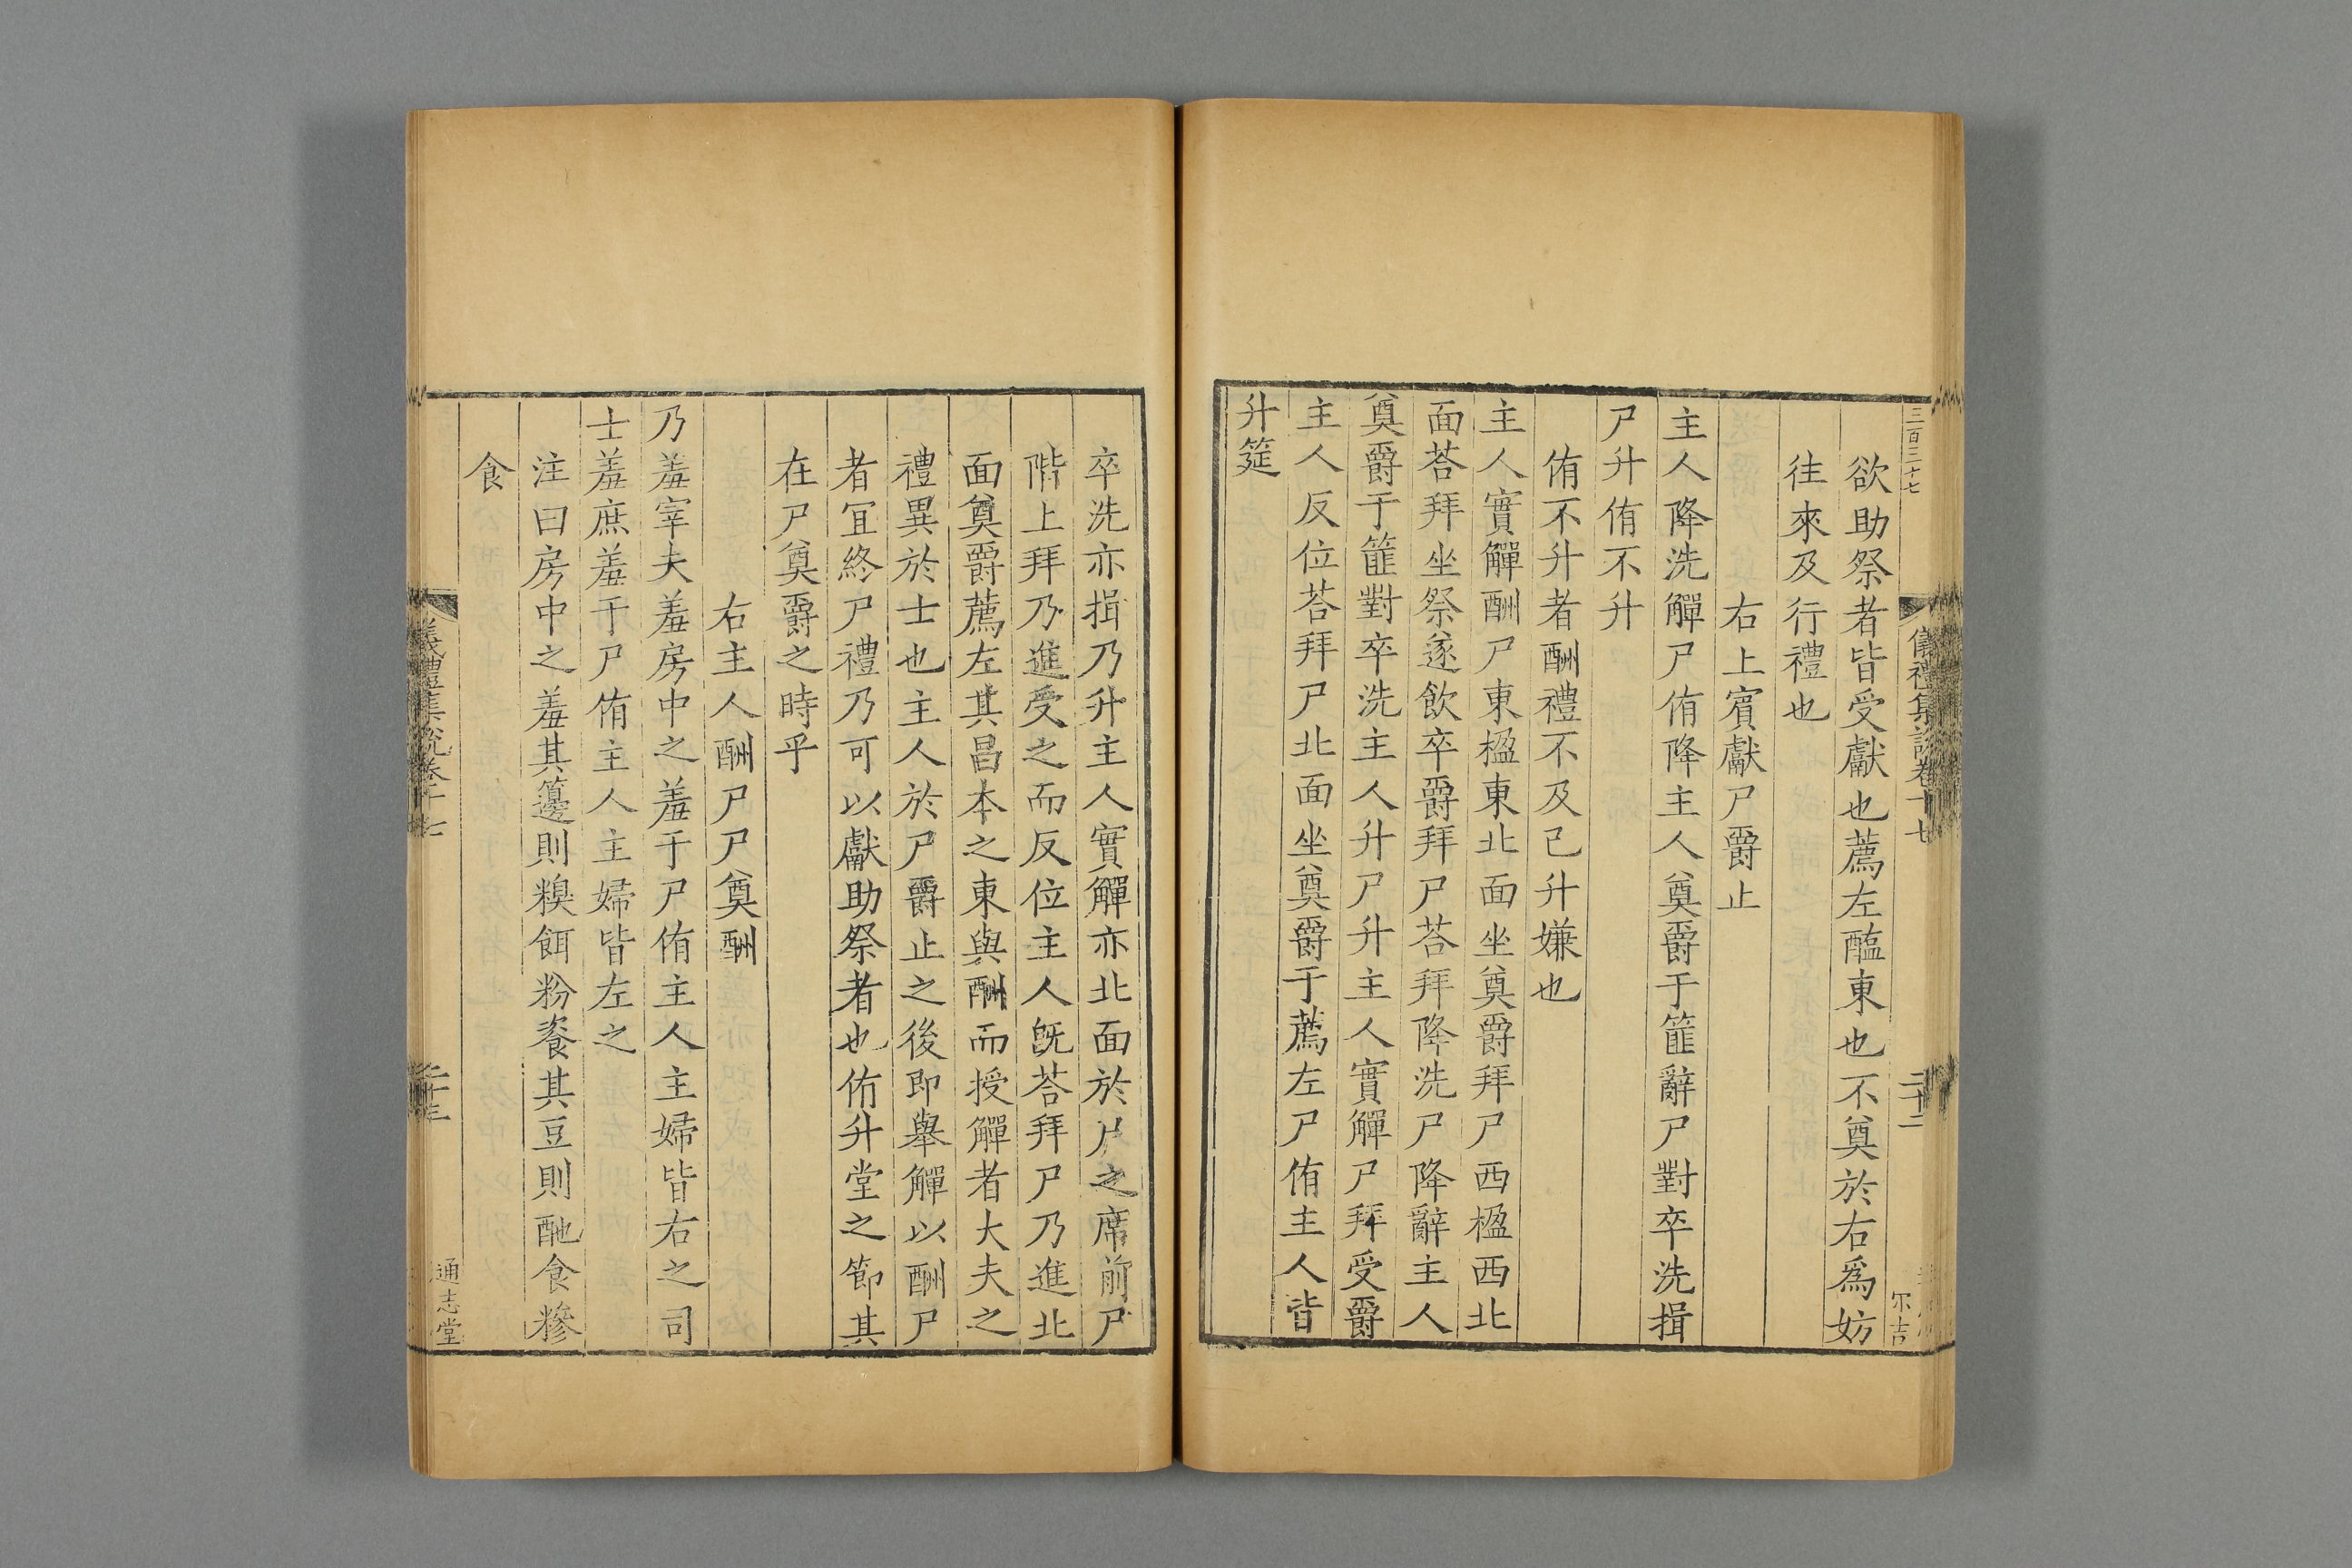 三百三十七
儀禮集說卷十七
二十二
尔吉
欲助祭者皆受獻也薦左醢東也不奠於右爲妨
往來及行禮也
右上賓獻尸爵止
主人降洗觶尸侑降主人奠爵于篚辭尸對卒洗揖
尸升侑不升
侑不升者酬禮不及己升嫌也
主人實觶酬尸東楹東北面坐奠爵拜尸西楹西北
面荅拜坐祭遂飲卒爵拜尸荅拜降洗尸降辭主人
奠爵于篚對卒洗主人升尸升主人實觶尸拜受爵
主人反位荅拜尸北面坐奠爵于薦左尸侑主人皆
升筵
卒洗亦揖乃升主人實觶亦北面於尸之席前尸
階上拜乃進受之而反位主人旣荅拜尸乃進北
面奠爵薦左其昌本之東與酬而授觶者大夫之
禮異於士也主人於尸爵止之後即舉觶以酬尸
者冝終尸禮乃可以獻助祭者也侑升堂之節其
在尸奠爵之時乎
右主人酬尸尸奠酬
乃羞宰夫羞房中之羞于尸侑主人主婦皆右之司
士羞庶羞于尸侑主人主婦皆左之
注曰房中之羞其籩則糗餌粉餈其豆則酏食糝
食
儀禮集說卷十七
二十三
通志堂